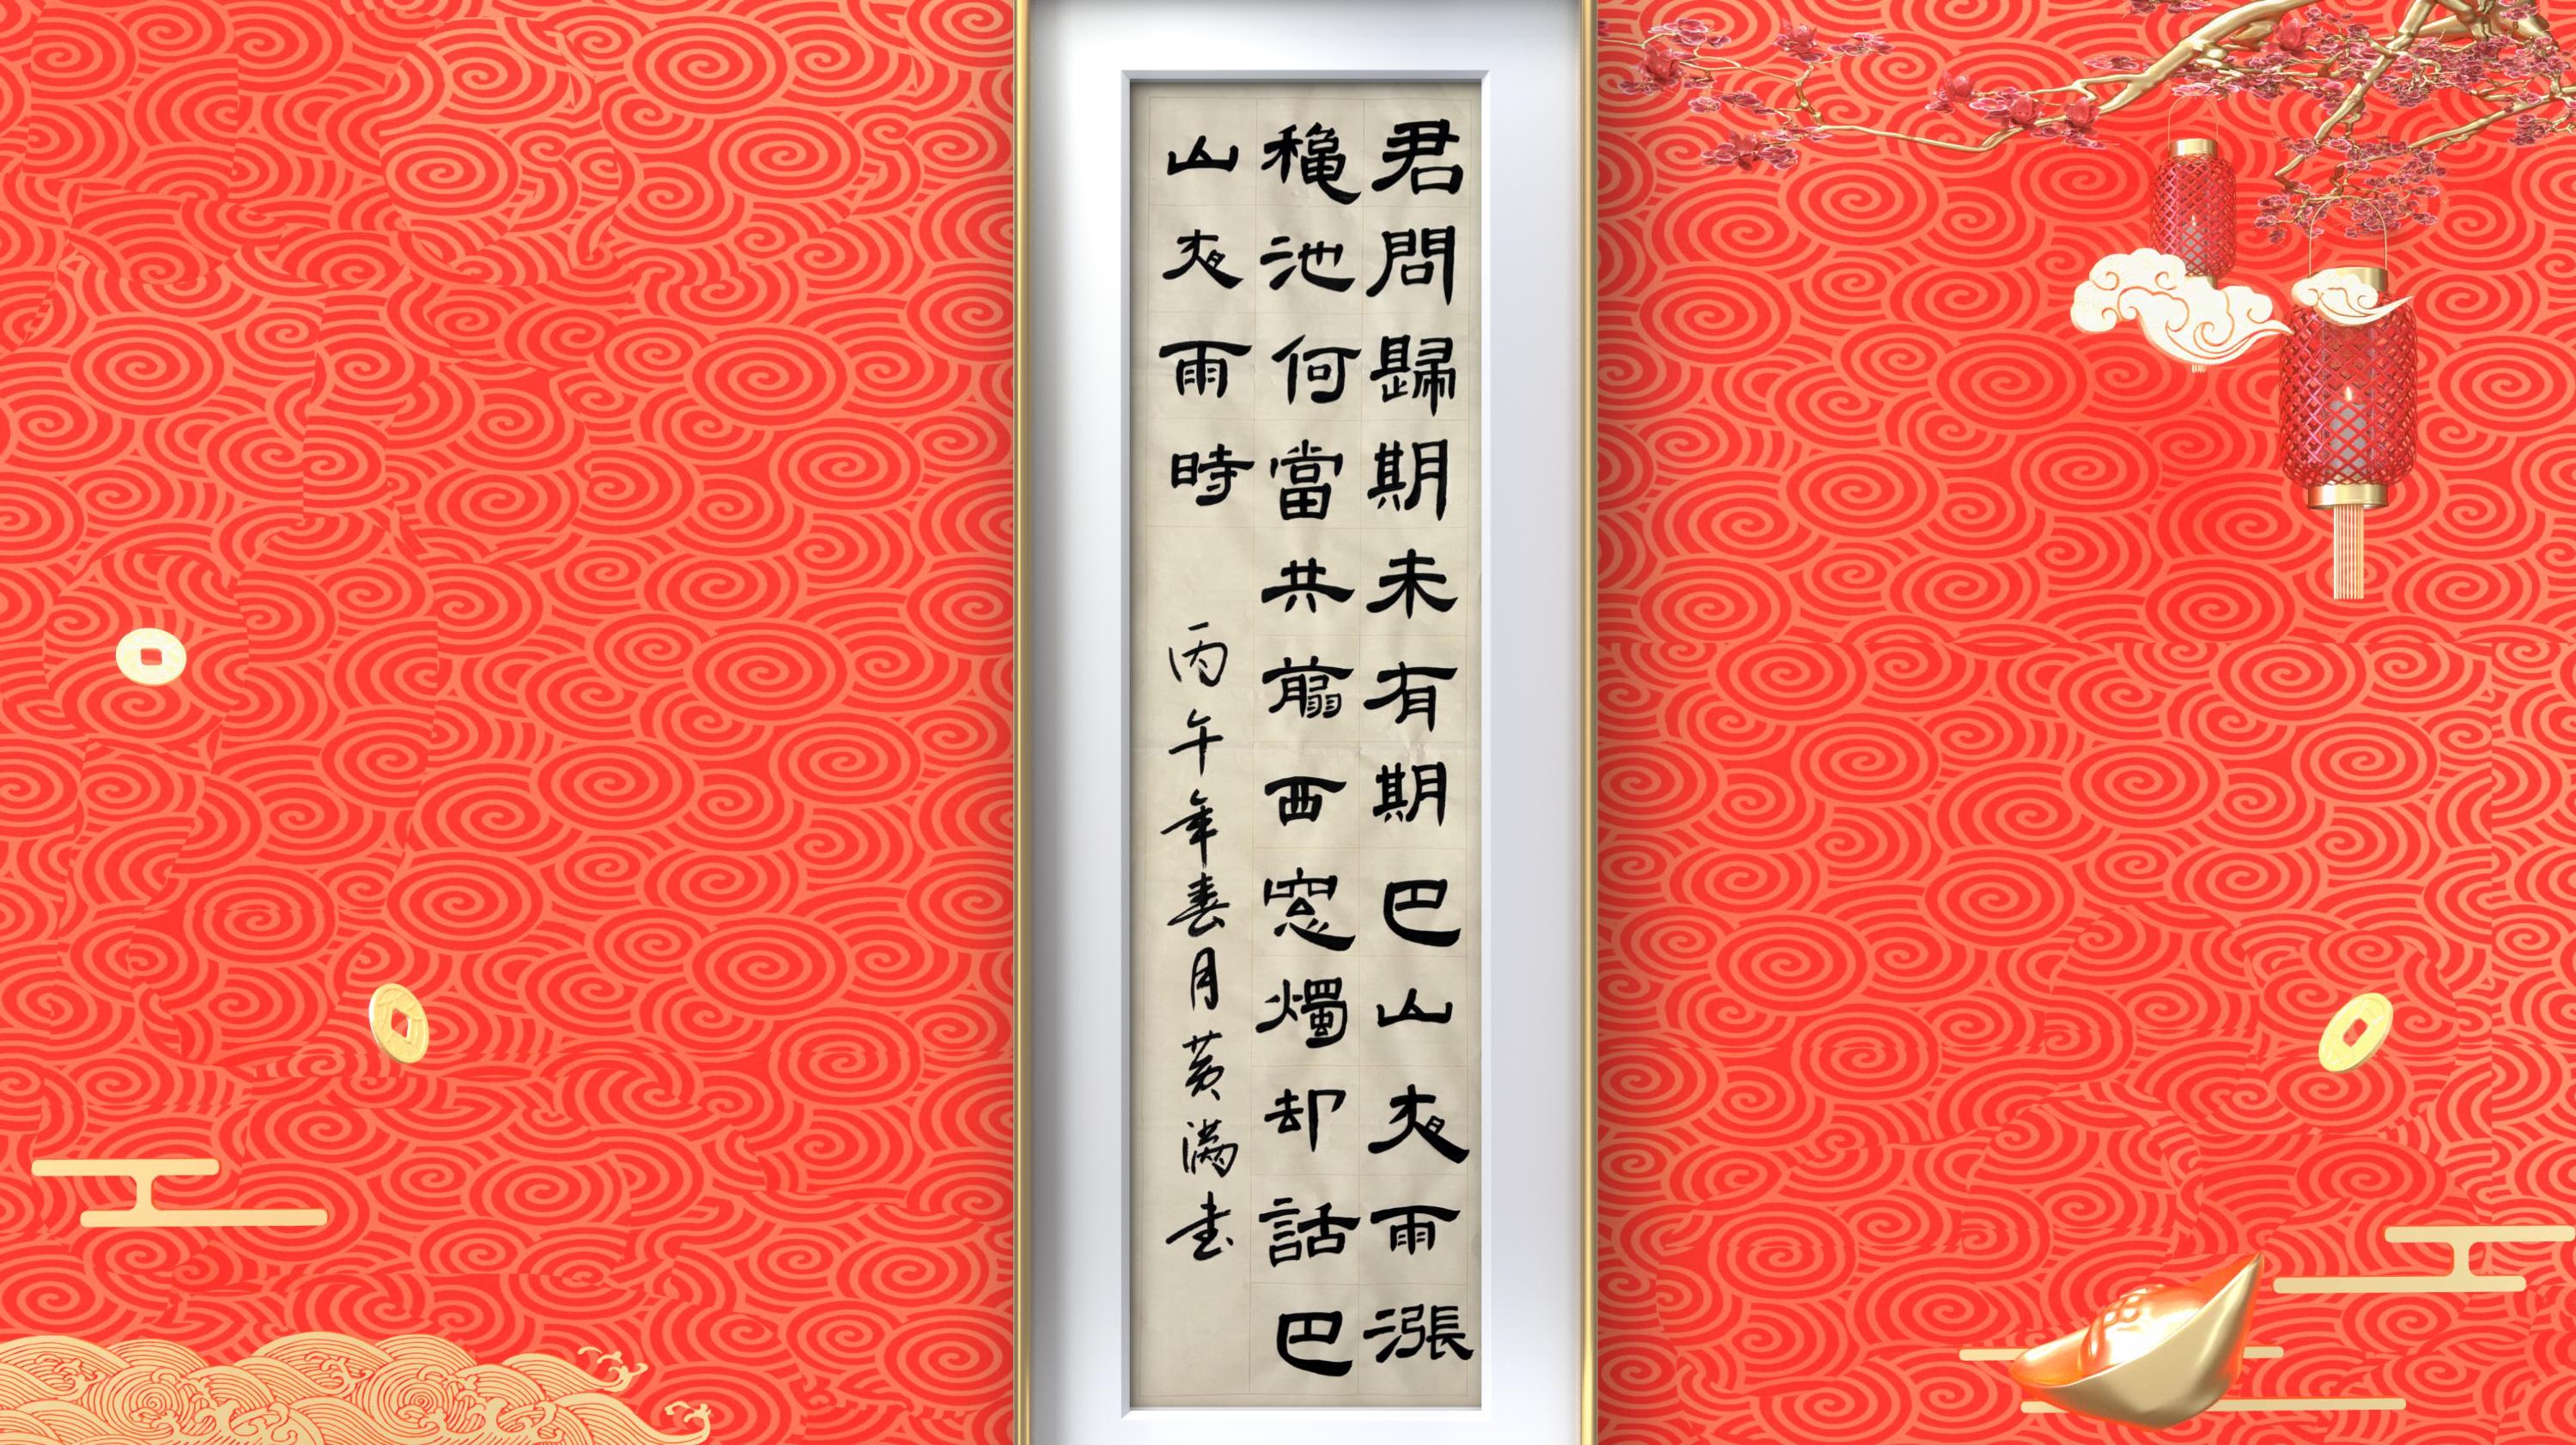 君問歸期未有期巴山夜雨漲
龝池何當共翦西窓燭却話巴
山夜雨時
丙午年春月黄满书